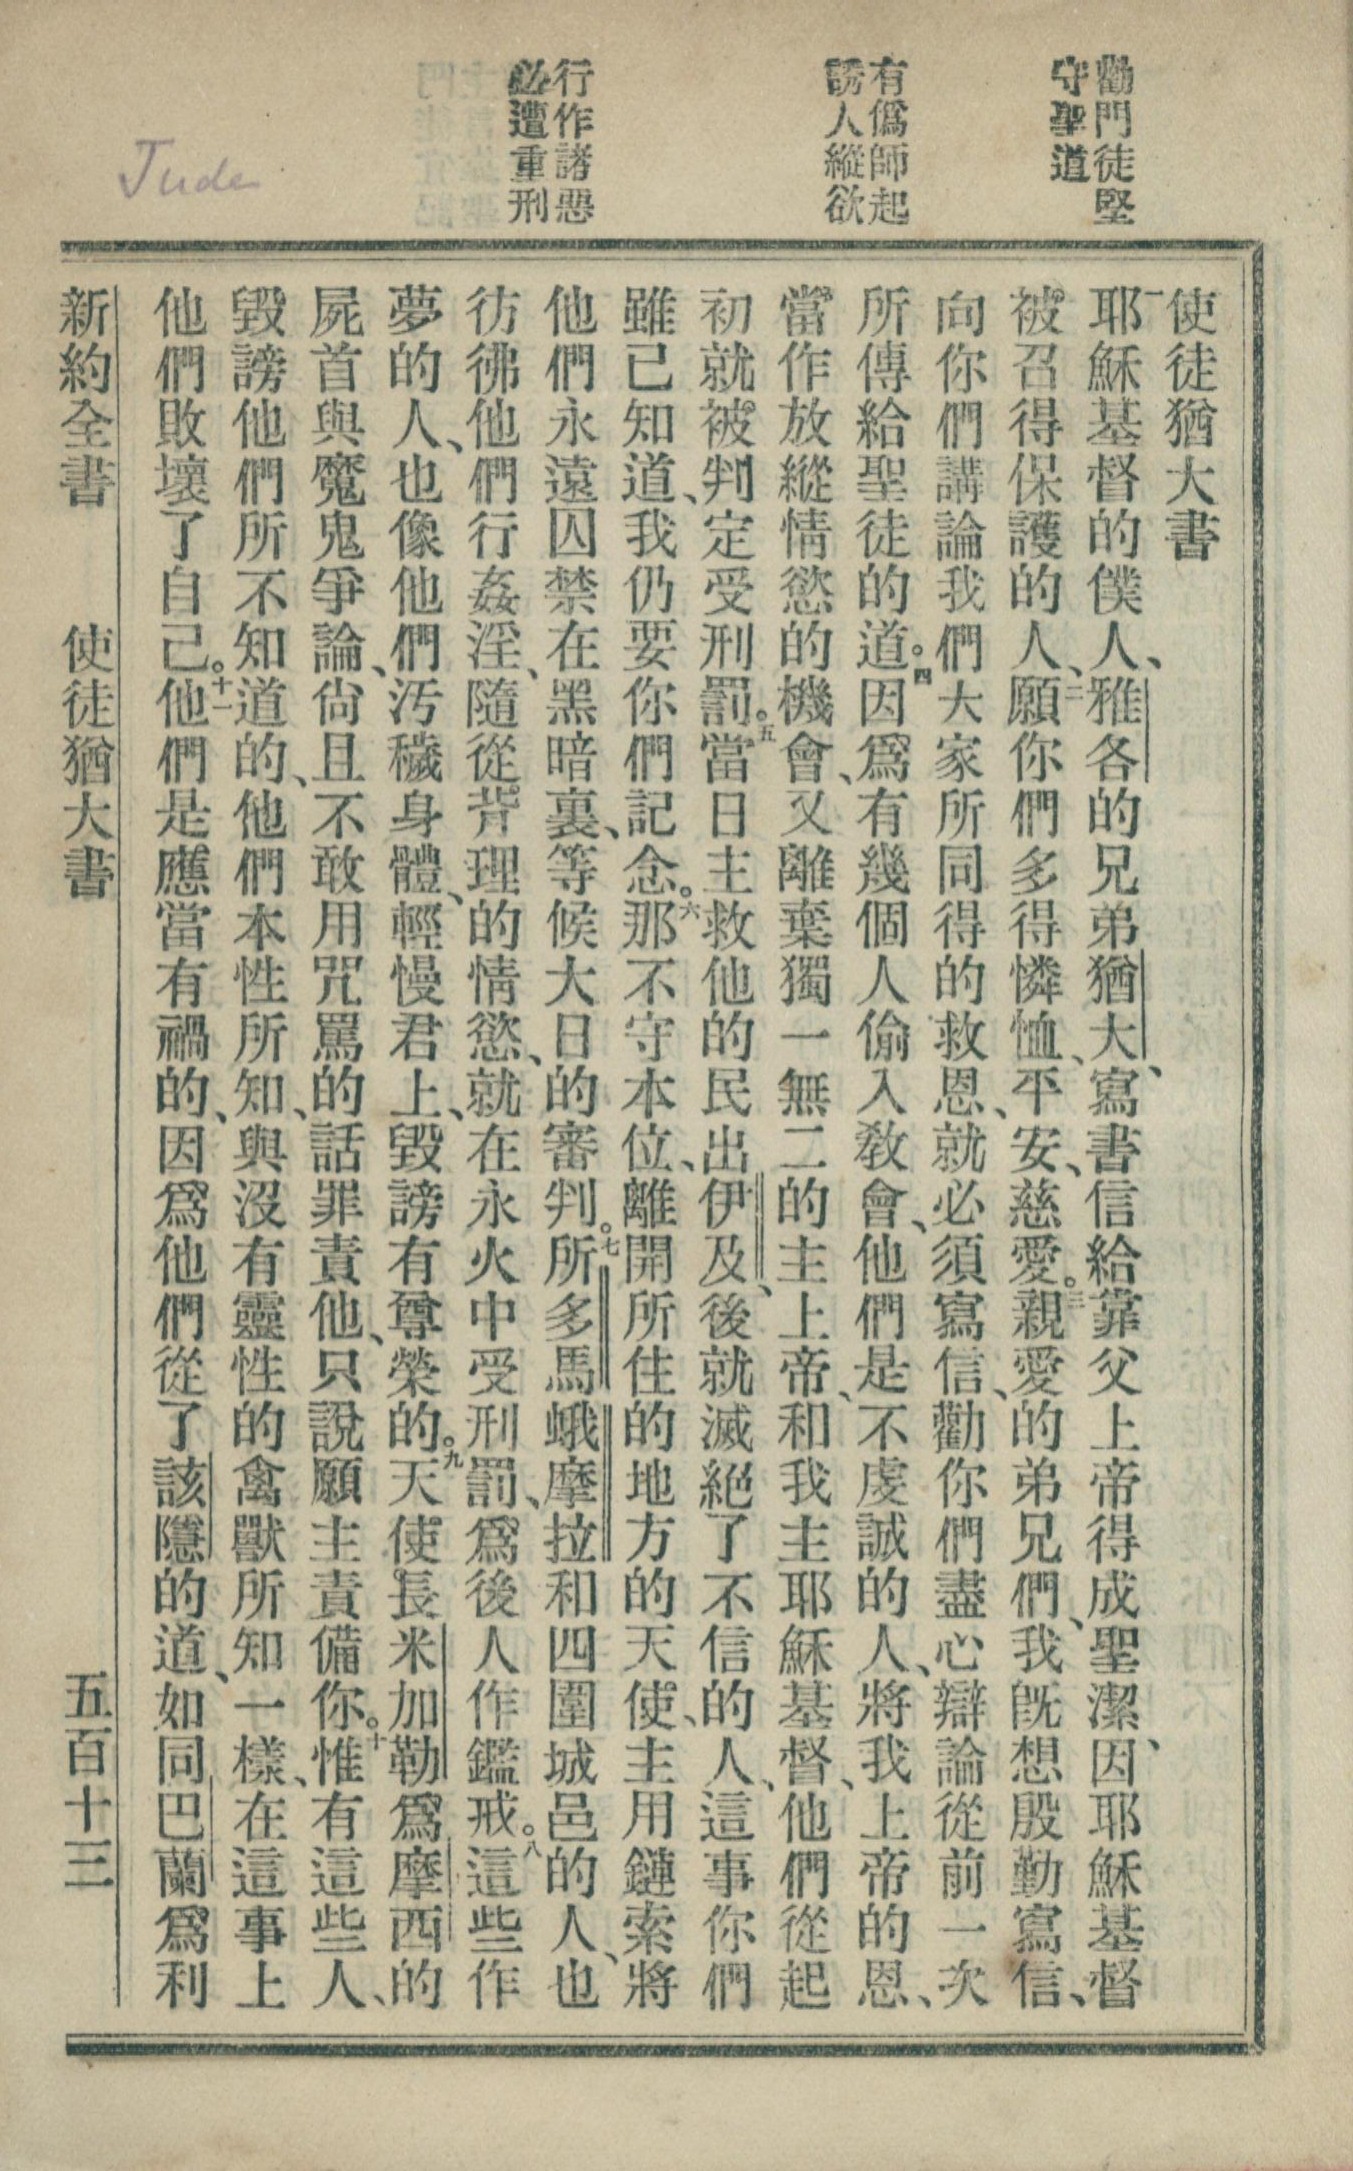 勸門徒堅
守聖道
有僞師起
誘人縱欲
行作諸惡
必遭重刑
Jude
使徒猶大書
一耶穌基督的僕人、雅各的兄弟猶大、寫書信給靠父上帝得成聖潔、因耶穌基督
被召得保護的人、二願你們多得憐恤、平安、慈愛。三親愛的弟兄們、我旣想殷勤寫信、
向你們講論我們大家所同得的救恩、就必須寫信、勸你們盡心辯論從前一次
所傳給聖徒的道。四因爲有幾個人偷入敎會、他們是不虔誠的人、將我上帝的恩、
當作放縱情慾的機會、又離棄獨一無二的主上帝、和我主耶穌基督、他們從起
初就被判定受刑罰。五當日主救他的民出伊及、後就滅絕了不信的人、這事你們
雖已知道、我仍要你們記念。六那不守本位、離開所住的地方的天使、主用鏈索將
他們永遠囚禁在黑暗裏、等候大日的審判。七所多馬蛾摩拉和四圍城邑的人、也
彷彿他們行姦淫、隨從背理的情慾、就在永火中受刑罰、爲後人作鑑戒。八這些作
夢的人、也像他們污穢身體、輕慢君上、毀謗有尊榮的。九天使長米加勒爲摩西的
屍首與魔鬼爭論、尙且不敢用咒罵的話罪責他、只說願主責備你。十惟有這些人、
毀謗他們所不知道的、他們本性所知、與沒有靈性的禽獸所知一樣、在這事上
他們敗壞了自己。十一他們是應當有禍的、因爲他們從了該隱的道、如同巴蘭爲利
新約全書 使徒猶大書 五百十三